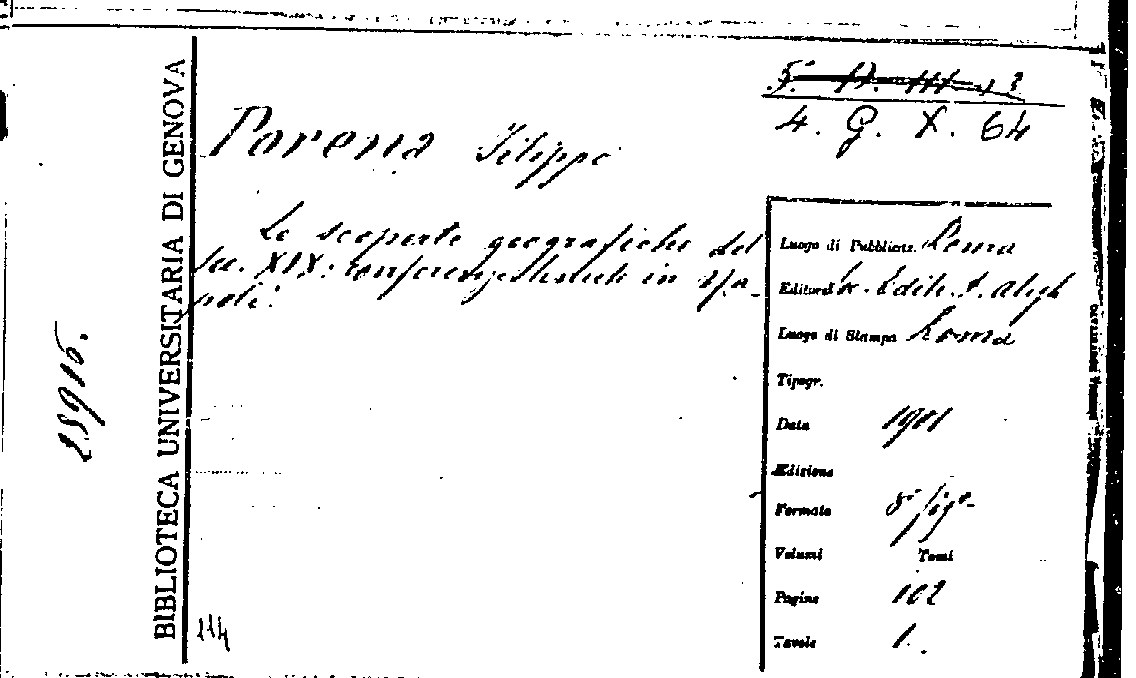 BIBLIOTECA UNIVERSITARIA DI GENOVA
25916.
4. G. X. 64
Porena Filippo
Le scoperte geografiche del
sec. XIX: conferenze tenute in Na-
poli.
Luogo di Pubblicaz. Roma
Editore Soc. Edit. D. Aligh
Luogo di Stampa Roma
Tipogr.
Data 1901
Edizione
Formato 8° fig°
Volumi Tomi
Pagine 102
Tavole 1.
114